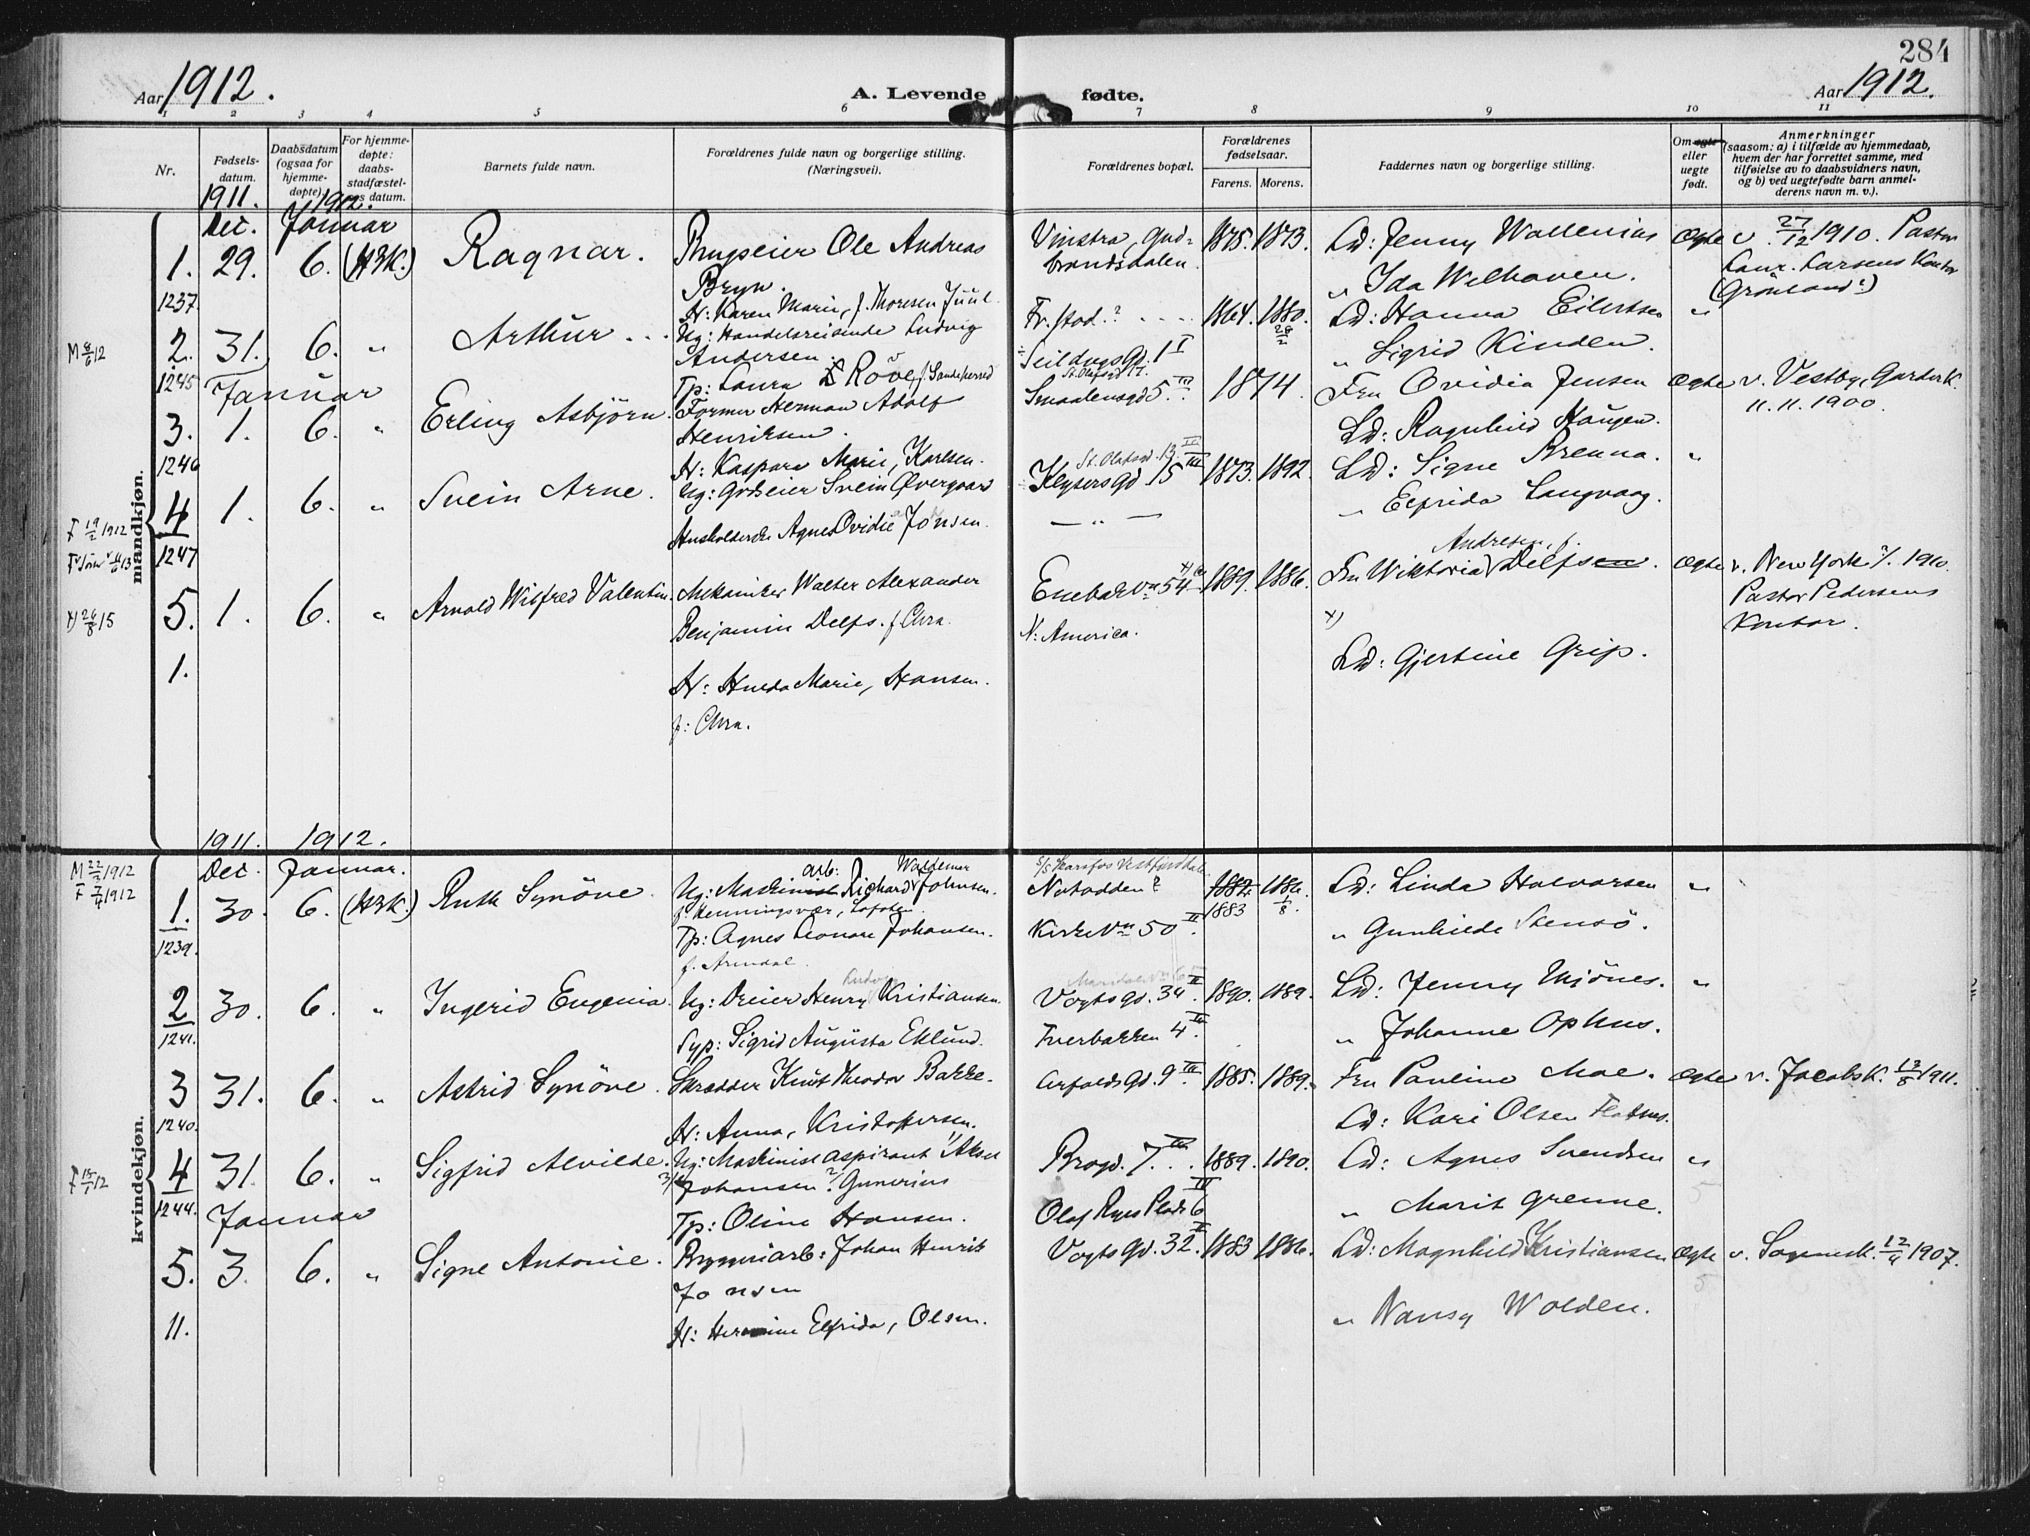 284
Aar 1912.
A. Levende fødte.
Aar 1912.
1 2 3 4 5 6 7 8 9 10 11
Nr.
Fødsels-
datum.
Daabsdatum
(ogsaa for
hjemme-
døpte).
For hjemme-
døpte:
daabs-
stadfæstel-
ses datum.
Barnets fulde navn.
Forældrenes fulde navn og borgerlige stilling.
(Næringsvei).
Forældrenes bopæl.
Forældrenes
fødselsaar.
Farens. Morens.
Faddernes navn og borgerlige stilling.
Om egte
eller
uegte
født.
Anmerkninger
(saasom: a) i tilfælde av hjemmedaab,
hvem der har forrettet samme, med
tilføielse av to daabsvidners navn,
og b) ved uegtefødte barn anmel-
derens navn m. v.).
mandkjøn.
1911. 1912.
Dec. Januar
1. 29. 6. (H3K.) Ragnar.
1237.
Brugseier Ole Andreas
Bryn.
H: Karen Marie, f. Thoresen Juul.
Vinstra, Gud-
brandsdalen.
1875. 1873.
Ld: Jenny Wallenius
" Ida Welhaven.
Ægte v. 27/12 1910. Pastor
Laur. Larsens Kontor
(Grönland?)
M 8/6 12
2. 31. 6. " Arthur...
1245
Ug: Handelsreisende Ludvig
Andersen.
Tp: Laura Röve, f. Sandeherred
Fr.stad? 1864. 1880.
Seildugsgd. 1 I
Ld: Hanna Eilertsen
" Sigrid Kinden.
"
Januar
3. 1. 6. " Erling Asbjörn.
1246
Former Herman Adolf
Henriksen.
H: Kaspara Marie, Karlsen.
Smaalensgd 5 III.
1874.
Fru Ovidia Jensen
Ld: Ragnhild Haugen.
Ægte v. Vestby, Garder K.
11.11.1900.
F 19/2 1912
4 1. 6. " Svein Arne.
1247
Ug: Godseier Svein Övergaard
Husholderske Agnes Ovidie Jonsen.
St. Olafsgd. 13 II
Keysersgd 15 III
— " —
1873. 1892.
Ld: Signe Brenna.
" Elfrida Langvaag.
"
x) 24/8 15
5. 1. 6. " Arnold Wilfred Valentin.
1.
Mekaniker Walter Alexander
Benjamin Delfs. f. Chra.
H: Hulda Marie, Hansen.
f: Chra.
Enebakvn 54
N: America.
1889. 1886.
Andresen, f.
Fru Wiktoria Delfsen.
x)
Ld: Gjertine Grip.
Ægte v. New York ?/. 1910.
Pastor Pedersens
Kontor.
kvindekjøn.
1911. 1912.
Dec. Januar.
M 22/3 1912
F 7/4 1912
1. 30. 6. (H3K.) Ruth Synöve.
1239.
arb: Waldemar
Ug: Maskinist Richard Johnsen.
f. Henningsvær, Lofoten.
Tp: Agnes Leonore Johansen.
f. Arendal.
Notodden?
Kirkevn 50 II.
1882. 1886.
1883 1/8.
Ld: Linda Halvorsen
" Gunhilde Stensö.
"
2 30. 6. " Ingerid Eugenia.
1241.
Ug: Dreier Henry Kristiansen.
Syp: Sigrid Augusta Eklund.
Vogtsgd. 34 II.
Tverbakken 4 IV.
1890. 1889.
Ld: Jenny Mjönes.
" Johanne Ophus.
"
3 31. 6. " Astrid Synöve.
1240.
Skrædder Knut Theodor Bakke.
H: Anna, Kristoffersen.
Osfaldsgd. 9 III.
1885. 1889.
Fru Pauline Moe.
Ld: Kari Olsen Flatnes.
Ægte v. Jacobsk. 13/8 1911.
F 15/1 12
4 31. 6. " Sigfrid Alvilde.
1244.
Ug: Maskinistaspirant Aksel
Johansen? Gunerius
Tp: Oline Hansen.
Brogd. 7 III.
Olaf Ryes Plads 6 IV
1889. 1890.
Ld: Agnes Svendsen
" Marit Grenne.
"
Januar
5. 3. 6. " Signe Antonie.
11.
Bryggeriarb: Johan Henrik
Jonsen
H: Hermine Elfrida, Olsen.
Vogtsgd. 32 II.
1883 1886.
Ld: Magnhild Kristiansen
" Nansy Wolden.
Ægte v. Sagenesk. 12/4 1907.